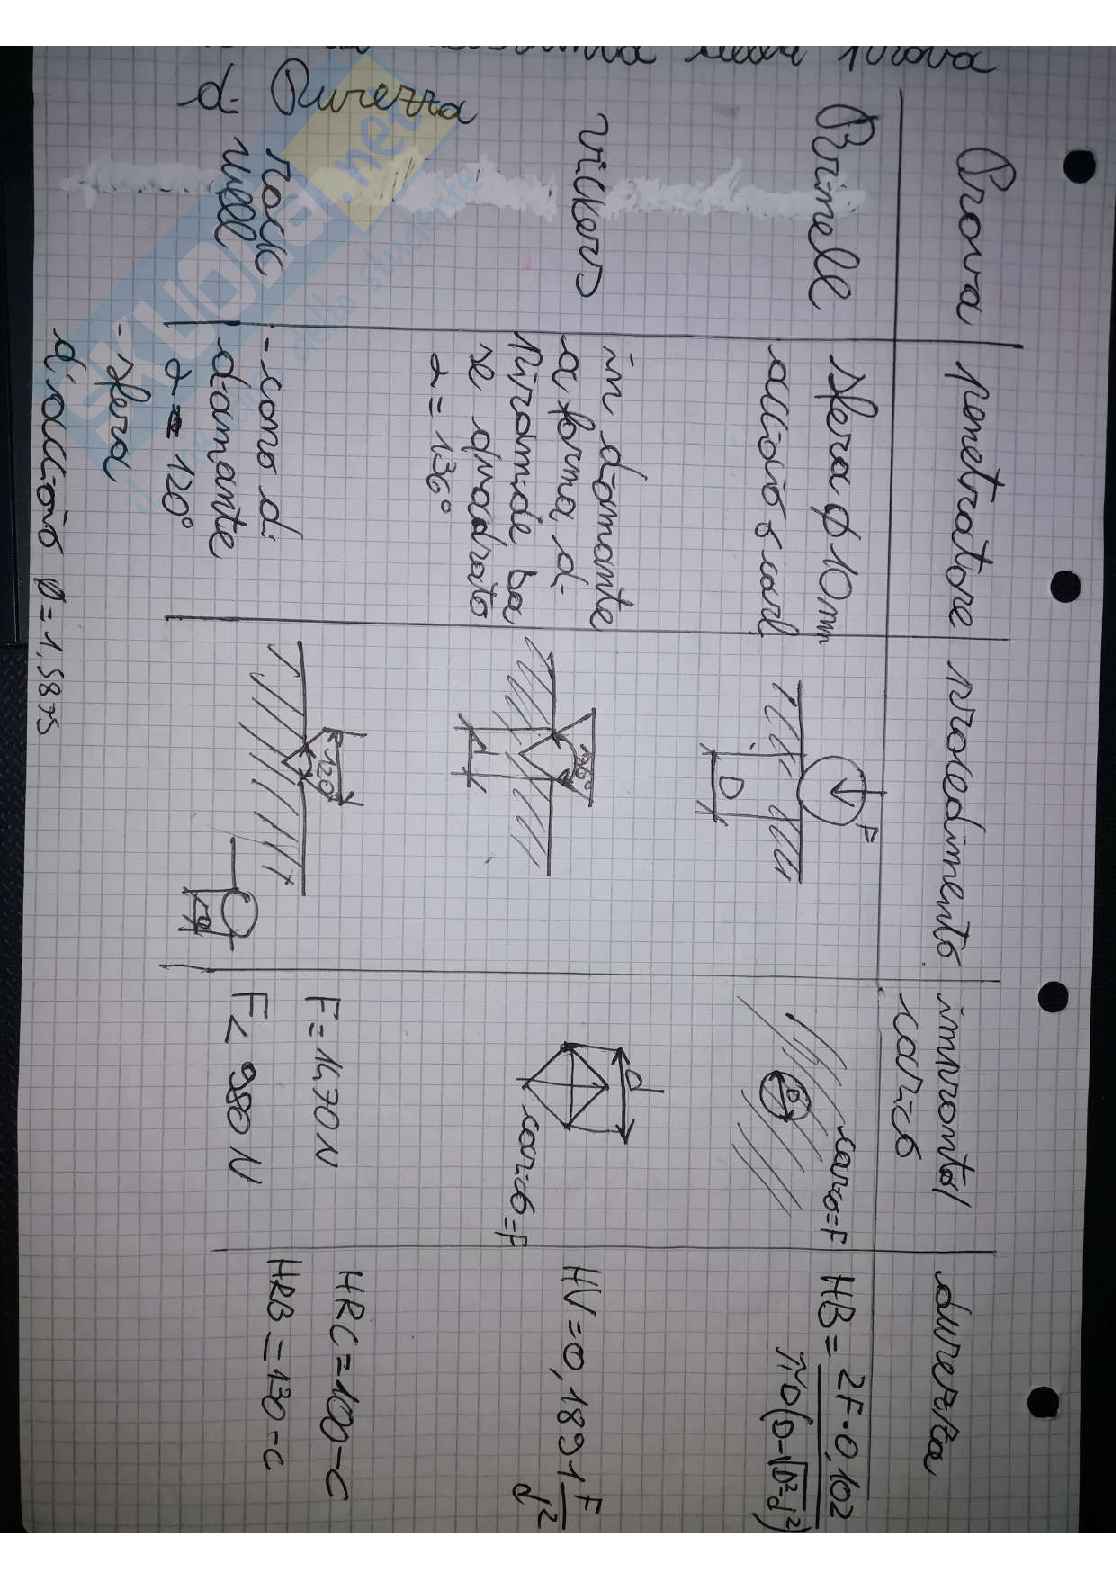 prova
di Durezza
Prova
penetratore
procedimento
impronta/
carico
durezza
Brinell
sfera ϕ 10mm
acciaio o card
F
D
carico=F
D
HB = 2F·0,102
πD(D-√D²-d²)
vickers
in diamante
a forma di
piramide ba
se quadrata
α = 136°
136°
d
d
carico=F
HV=0,1891 F
d²
Rock
well
- cono di
diamante
α = 120°
- sfera
d'acciaio ϕ=1,5875
120°
F = 1470 N
F< 980 N
HRC = 100-c
HRB = 130-c
SKUOLA.net